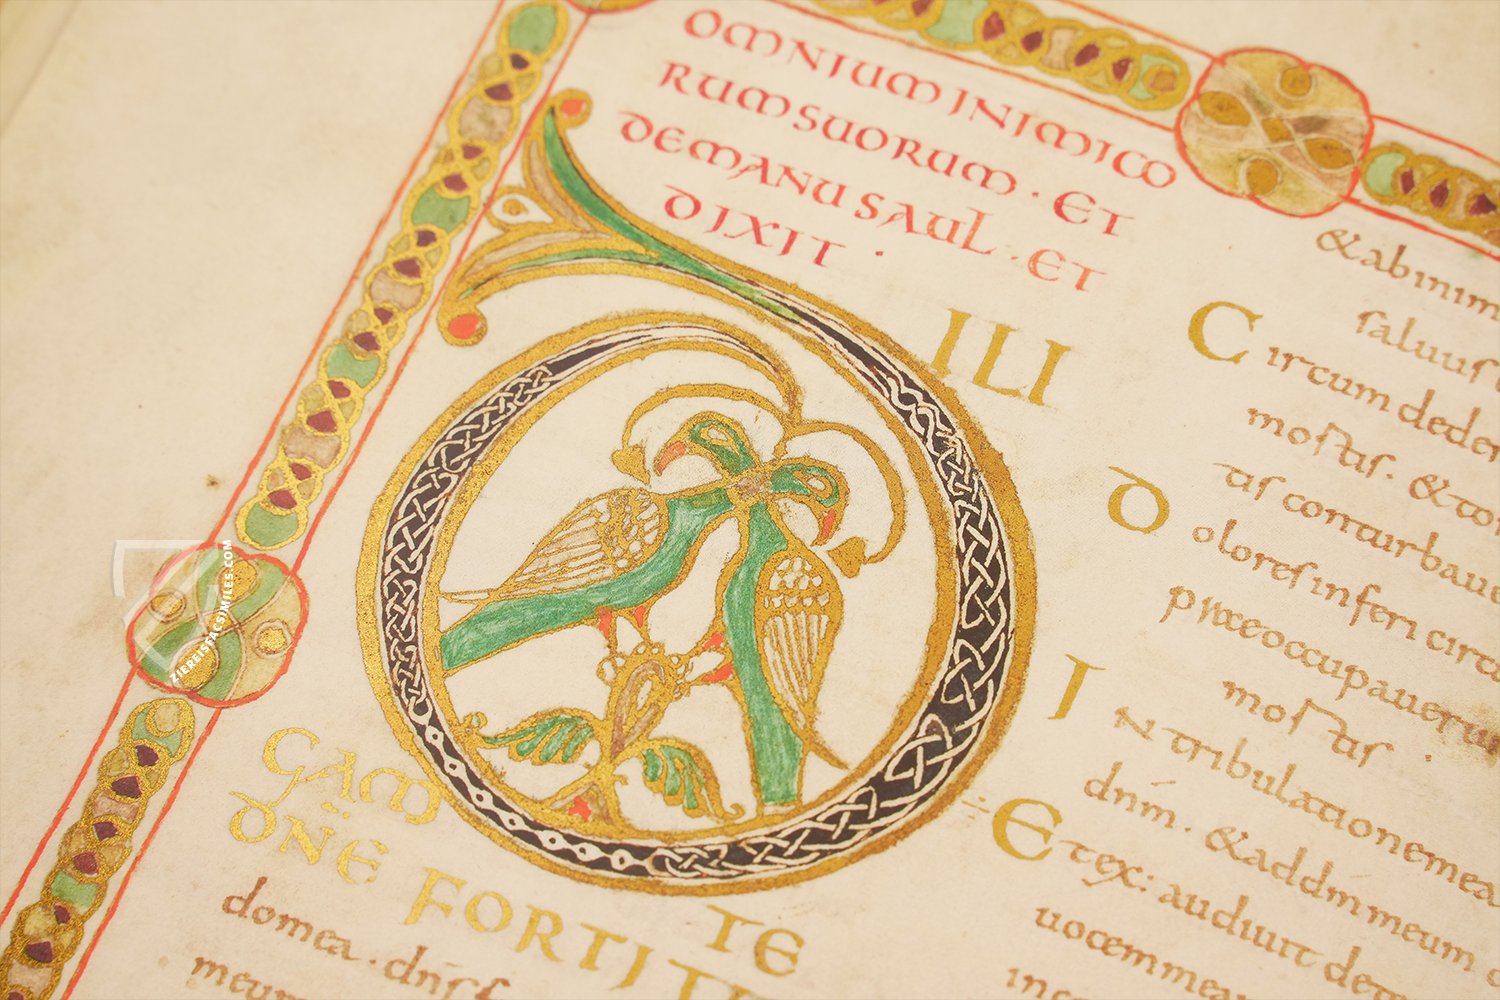 OMNIUM INIMICO
RUM SUORUM · ET
DE MANU SAUL · ET
DIXIT ·
DILI
GAM TE
DÑE FORTI
domea. dñs
meum
& ab inim
C ircum deder
mortis. & tor
tis conturbaue
D olores inferi circu
praeoccupauerun
mortis
I N tribulatione mea
dnm. & ad dm meum
÷ E t ex: audiuit de
uocem mea
ZIEREISFACSIMILES.COM